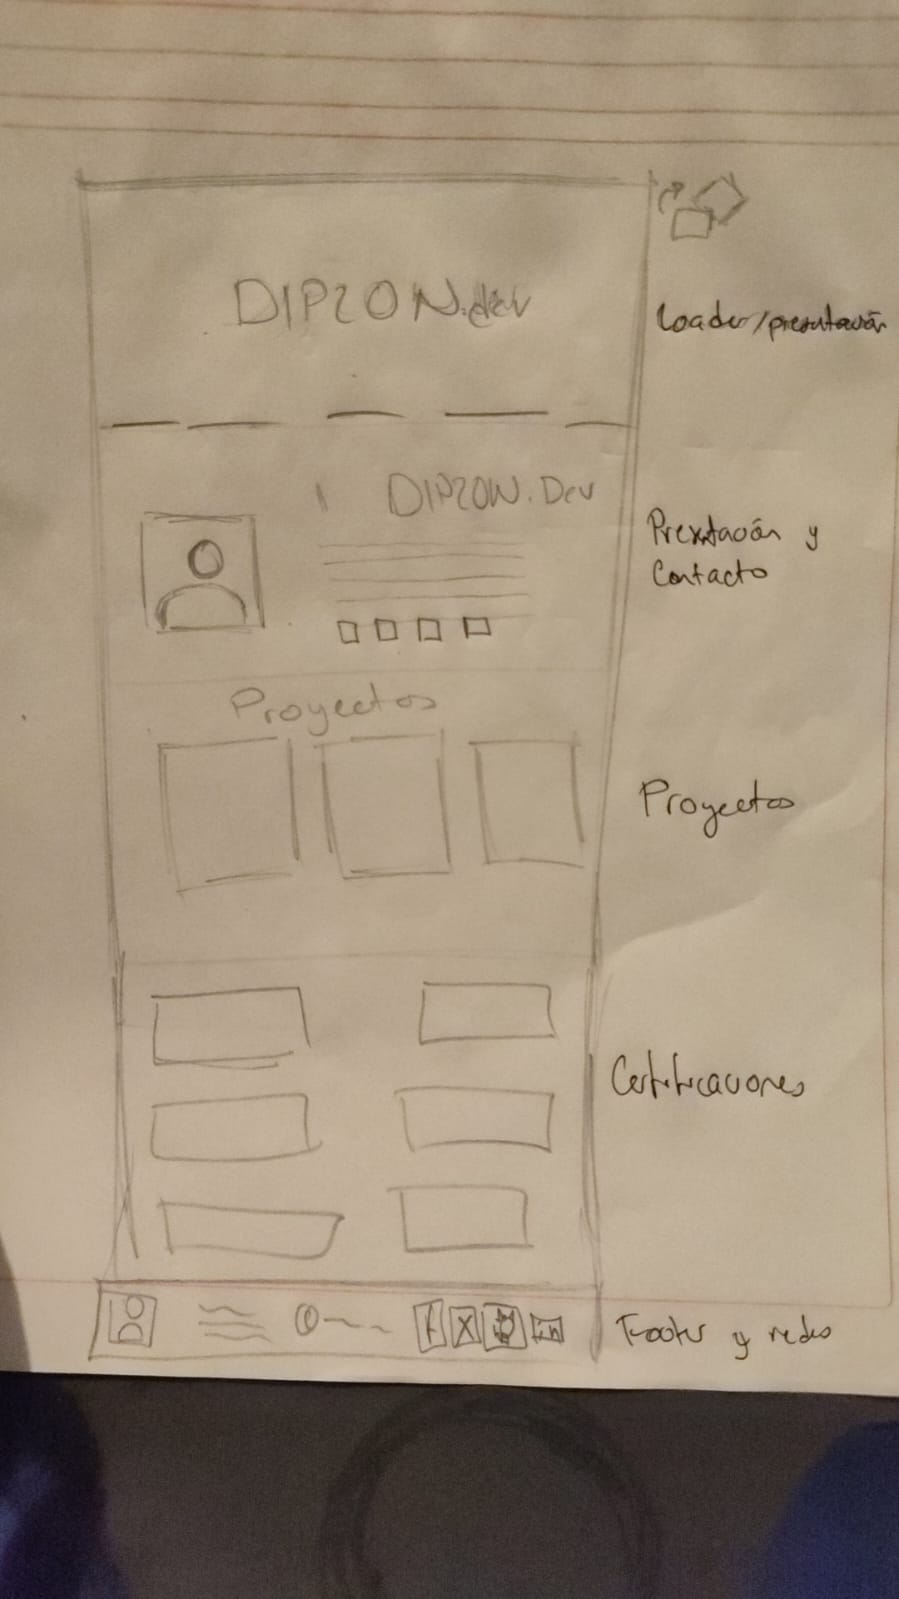 DIPZON.dev
Loader/presentación
DIPZON.Dev
Presentación y
Contacto
Proyectos
Proyectos
Certificaciones
Footer y redes
f X in